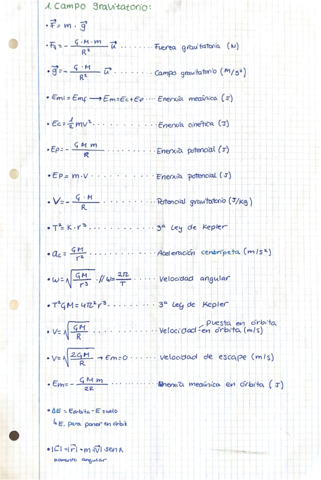 1. Campo gravitatorio:
• F⃗ = m · g⃗
• Fg = - G · M · m / R² u⃗ ........ Fuerza gravitatoria (N)
• g⃗ = - G · M / R² u⃗ ........ Campo gravitatorio (m/s²)
• Emi = Emf → Em = Ec + Ep ... Enerxía mecánica (J)
• Ec = 1/2 mv² ........ Enerxía cinética (J)
• Ep = - G M m / R ........ Enerxía potencial (J)
• Ep = m · V ........ Enerxía potencial (J)
• V = - G · M / R ........ Potencial gravitatorio (J/kg)
• T² = K · r³ ........ 3ª Ley de Kepler
• ac = GM / r² ........ Aceleración centrípeta (m/s²)
• ω = √(GM / r³) · // ω = 2π / T ........ Velocidad angular
• T²GM = 4π² r³ ........ 3ª Ley de Kepler
• V = √(GM / R) ........ Velocidad en órbita (m/s)
Puesta en órbita
• V = √(2GM / R) → Em = 0 ........ Velocidad de escape (m/s)
• Em = - G M m / 2R ........ Enerxía mecánica en órbita (J)
• ΔE = Eórbita - E
↳ E. para poner en órbit
• |L⃗| = |r⃗| · m |v⃗| sen
momento angular